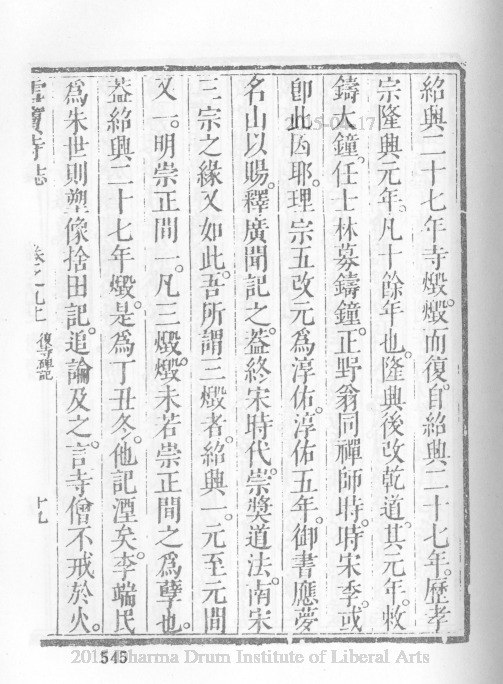 紹興二十七年寺燬燬而復自紹興二十七年歷孝
宗隆興元年凡十餘年也隆興後改乾道其元年敕
鑄大鐘任士林募鑄鐘正野翁同禪師時時宋季或
卽此因耶理宗五改元為淳佑淳佑五年御書應夢
名山以賜釋廣聞記之葢終宋時代崇獎道法南宋
三宗之緣又如此吾所謂三燬者紹興一元至元間
又一明崇正間一凡三燬燬未若崇正間之為孽也
葢紹興二十七年燬是為丁丑冬他記湮矣李端民
為朱世則塑像捨田記追論及之言寺僧不戒於火
雪竇寺志
卷之九上
復寺碑記
十九
545
Dharma Drum Institute of Liberal Arts